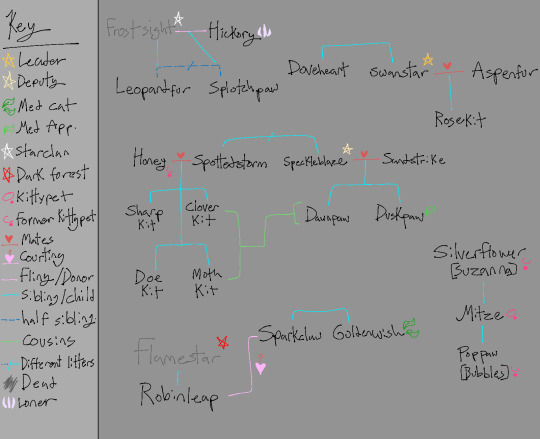 Key
Leader
Deputy
Med cat
Med App.
Starclan
Dark forest
Kittypet
Former Kittypet
Mates
Courting
Fling/Donor
Sibling/child
half sibling
Cousins
Different litters
Dead
Loner
Frostsight
Hickory
Leopardfur
Splotchpaw
Doveheart
Swanstar
Aspenfur
Rosekit
Honey
Spottedstorm
Speckleblaze
Sunstrike
Sharp
Kit
Clover
Kit
Dawnpaw
Duskpaw
Doe
Kit
Moth
Kit
Silverflower
[Suzanna]
Mitze
Poppaw
[Bubbles]
Sparkclaw
Goldenwish
Flamestar
Robinleap